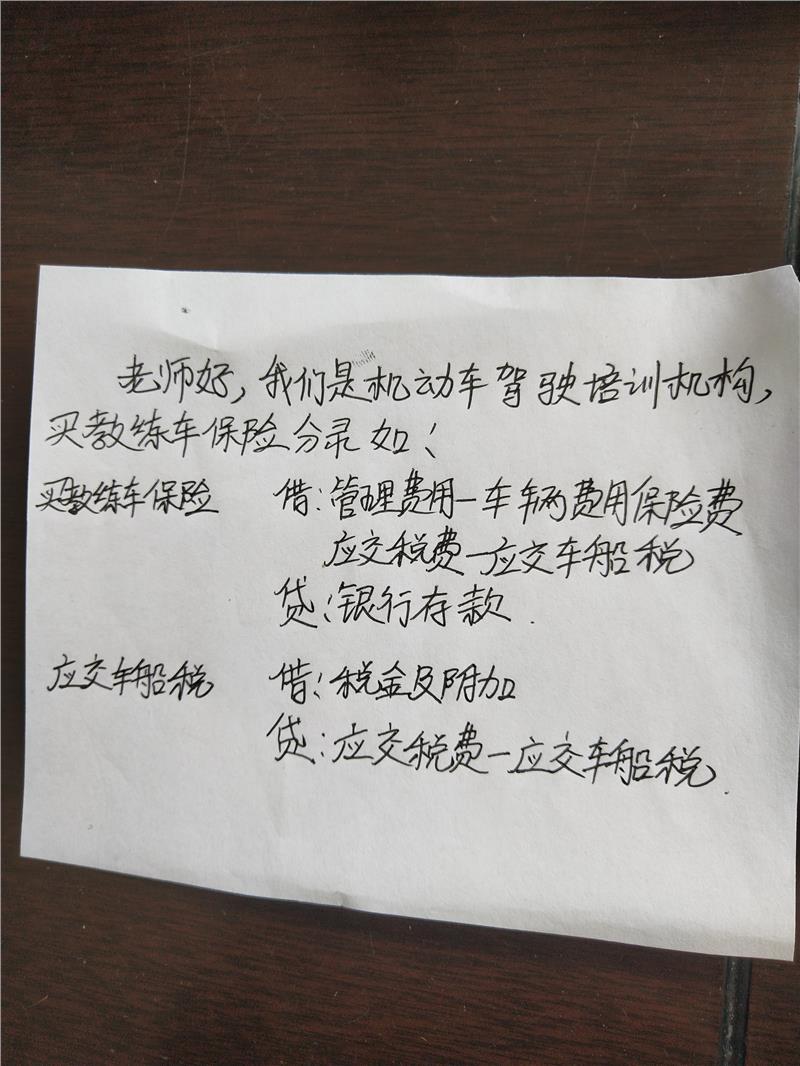 老师好,我们是机动车驾驶培训机构,
买教练车保险分录如:
买教练车保险 借:管理费用—车辆费用保险费
应交税费—应交车船税
贷:银行存款.
应交车船税 借:税金及附加
贷:应交税费—应交车船税.